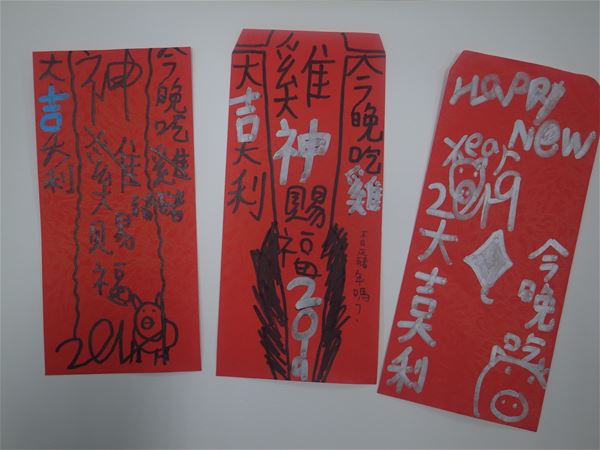 今晚吃雞
神雞賜福
大吉大利
今晚吃雞
不是豬年嗎?
雞神賜福2019
大吉大利
HAPPY
New
Year
2019
今晚吃
大吉大利